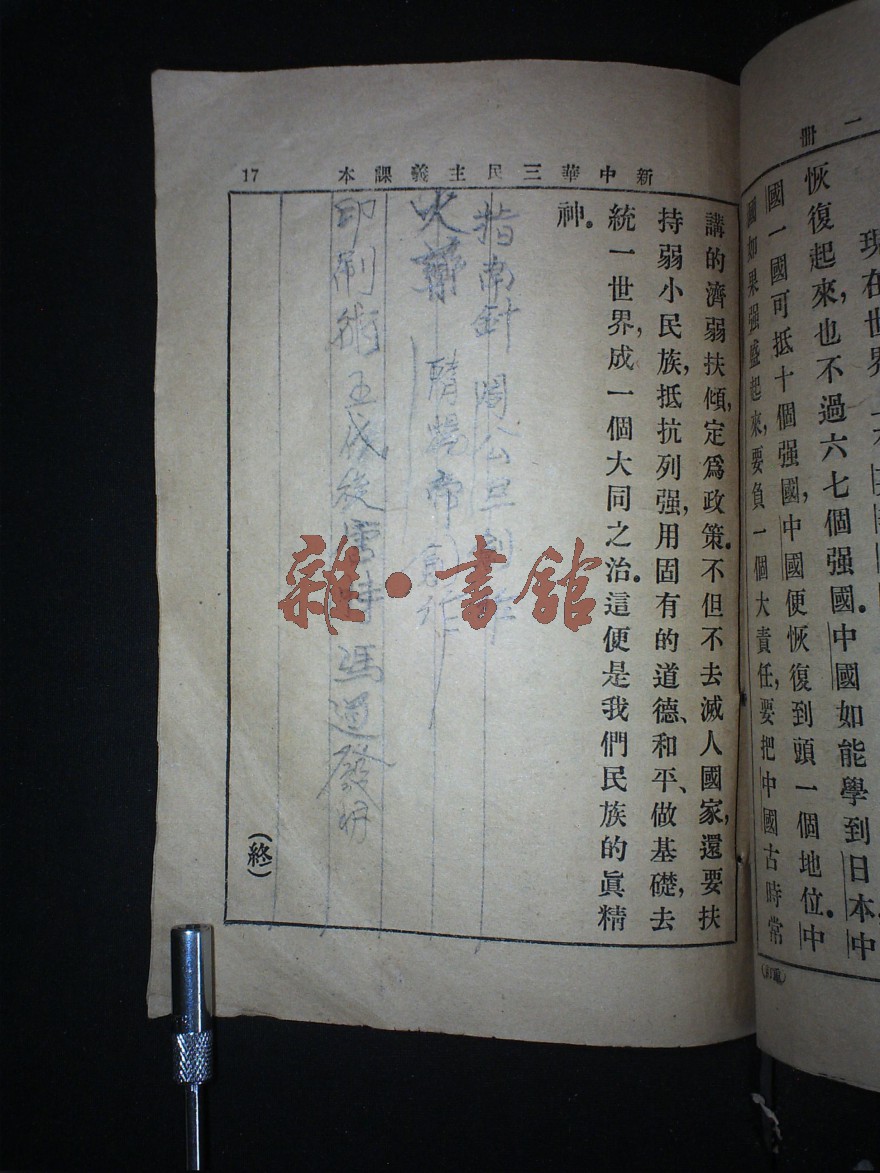 一册
現在世界
恢復起來，也不過六七個强國。中國如能學到日本，中
國一國可抵十個强國，中國便恢復到頭一個地位。中
國如果强盛起來，要負一個大責任，要把中國古時常
新中華三民主義課本
17
講的濟弱扶傾，定爲政策。不但不去滅人國家，還要扶
持弱小民族，抵抗列强，用固有的道德、和平、做基礎，去
統一世界，成一個大同之治。這便是我們民族的眞精
神。
指南針 周公旦創作
火藥 隋煬帝創作
印刷術 五代後唐時 馮道發明
（終）
雜·書館